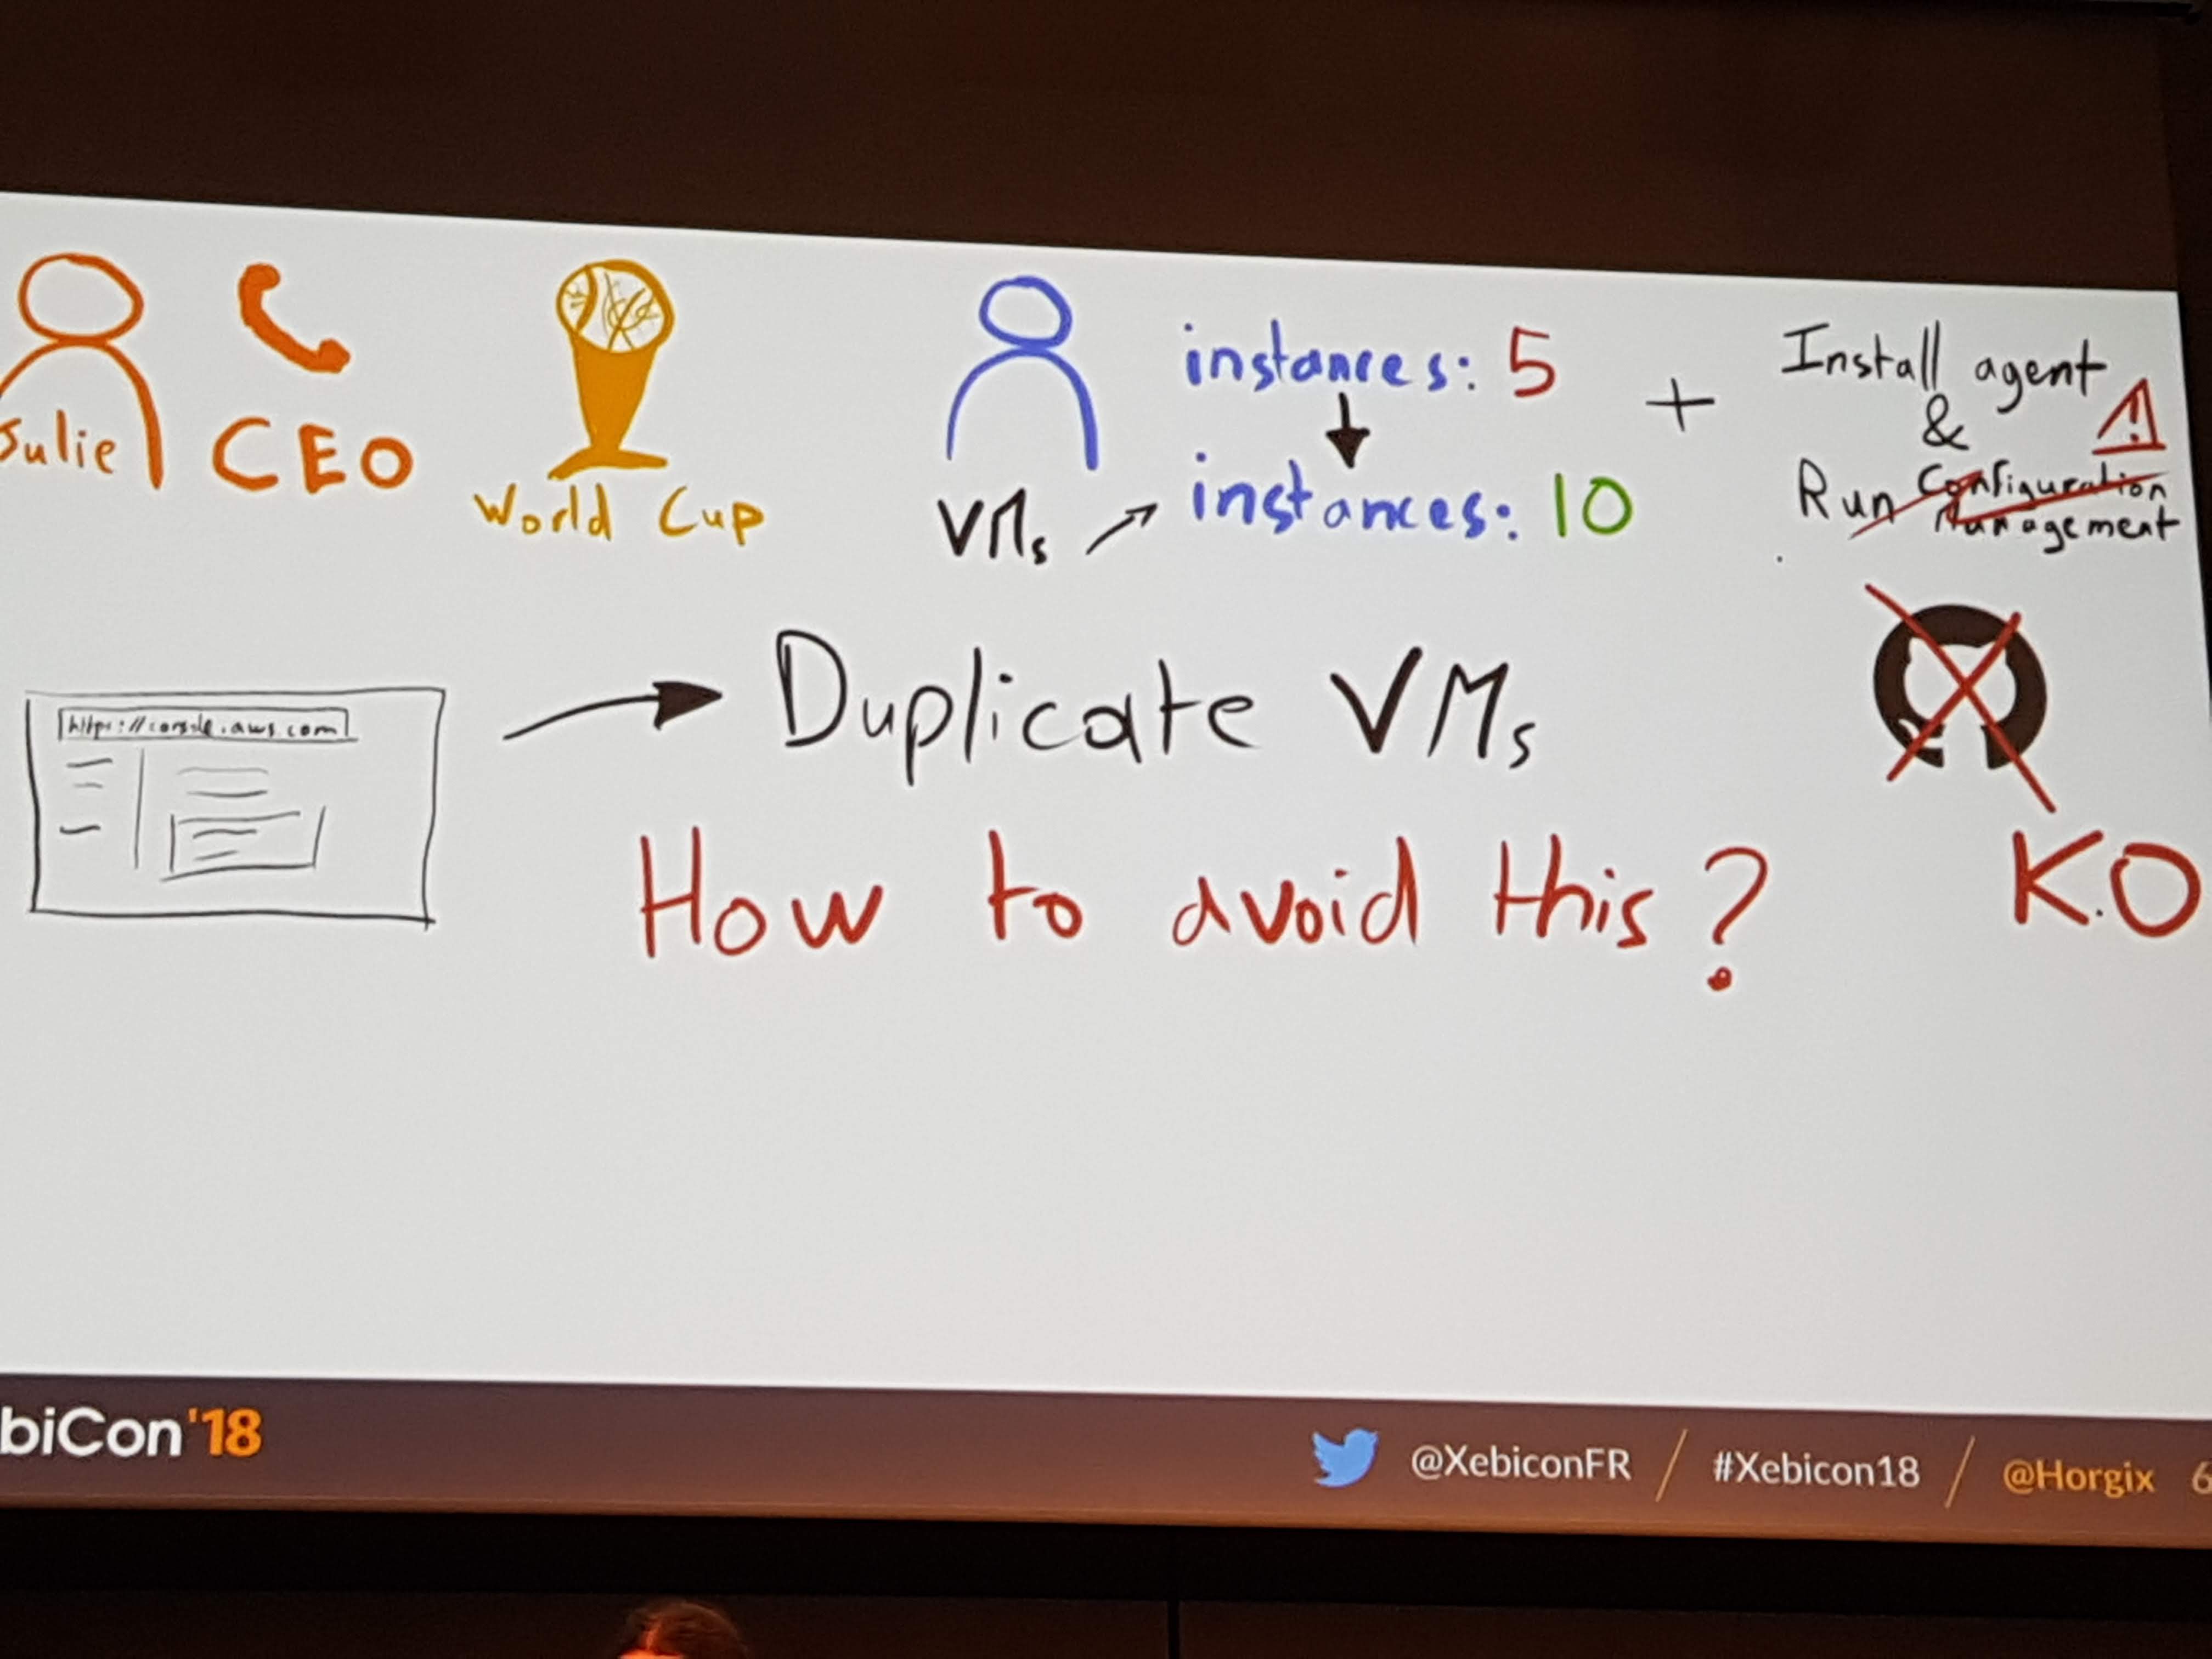 Julie
CEO
World Cup
VMs
instances: 5
instances: 10
+
Install agent
&
Run Configuration
Management
https://console.aws.com
Duplicate VMs
How to avoid this?
K.O
biCon'18
@XebiconFR / #Xebicon18 / @Horgix 6